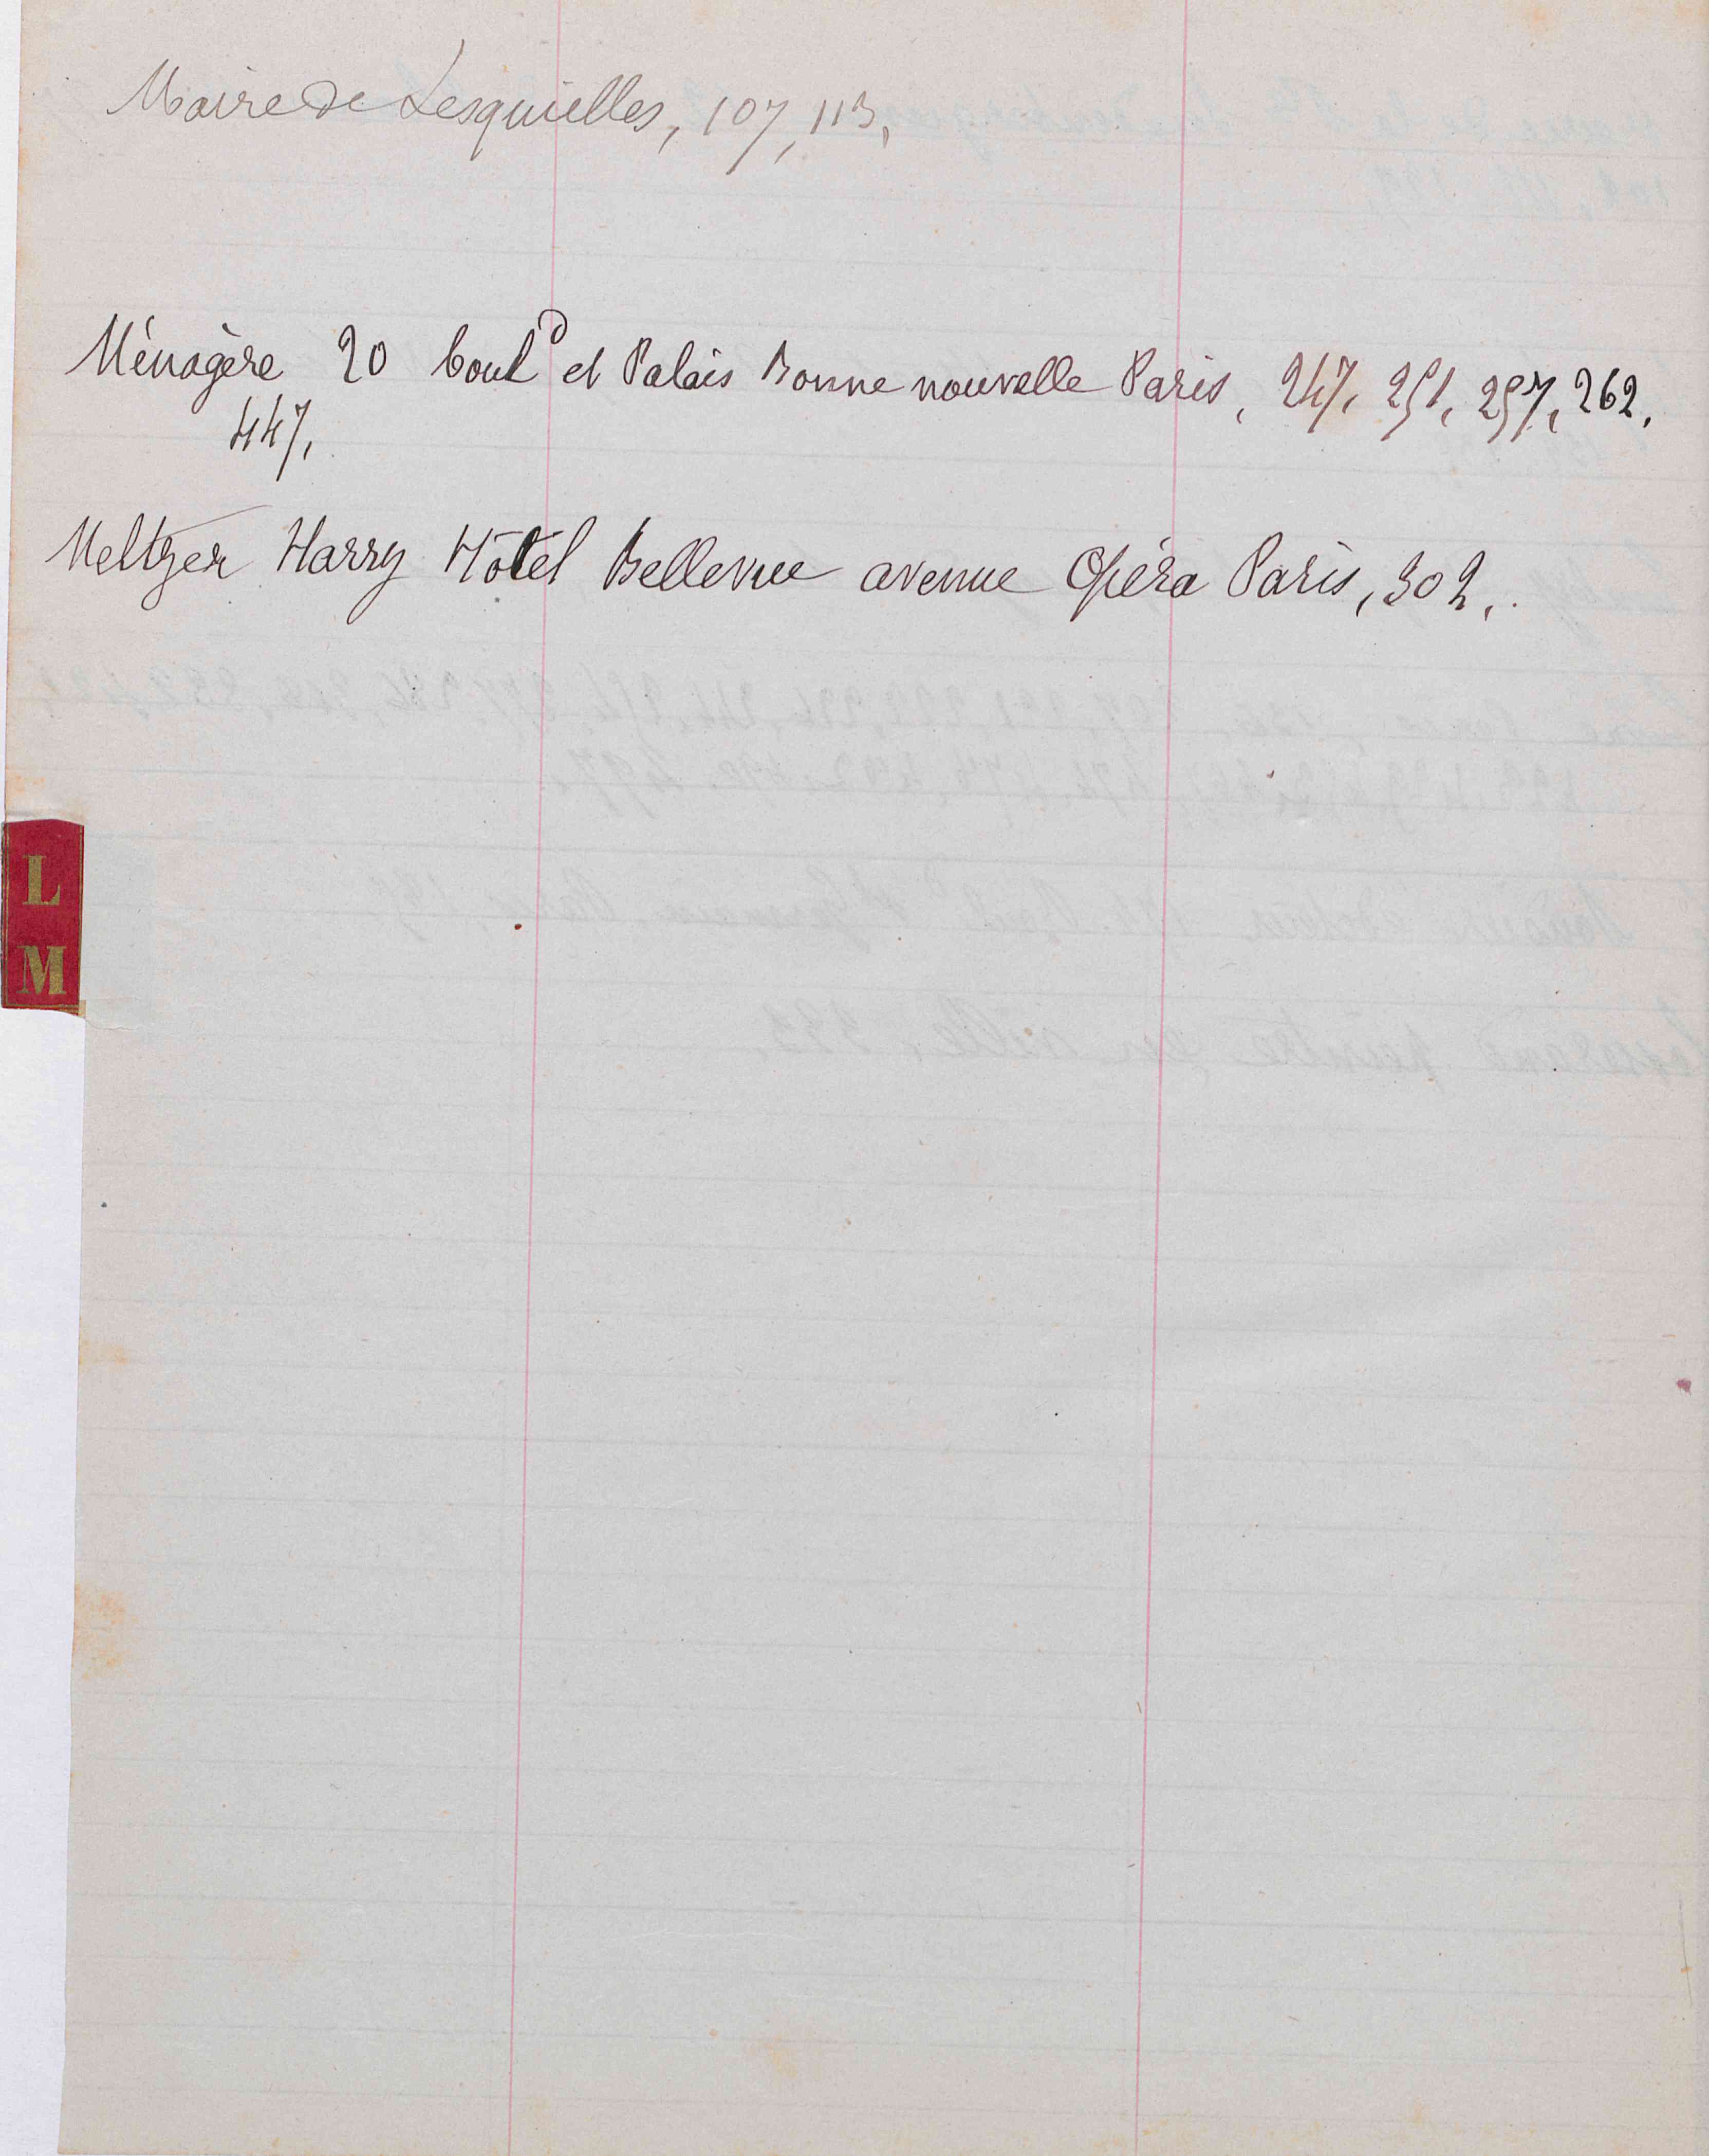 Maire de Lesquielles, 107, 113,
Ménagère 20 boul^d et Palais Bonne nouvelle Paris, 247, 251, 257, 262,
447,
Meltzer Harry Hôtel Bellevue avenue Opéra Paris, 302,.
L
M